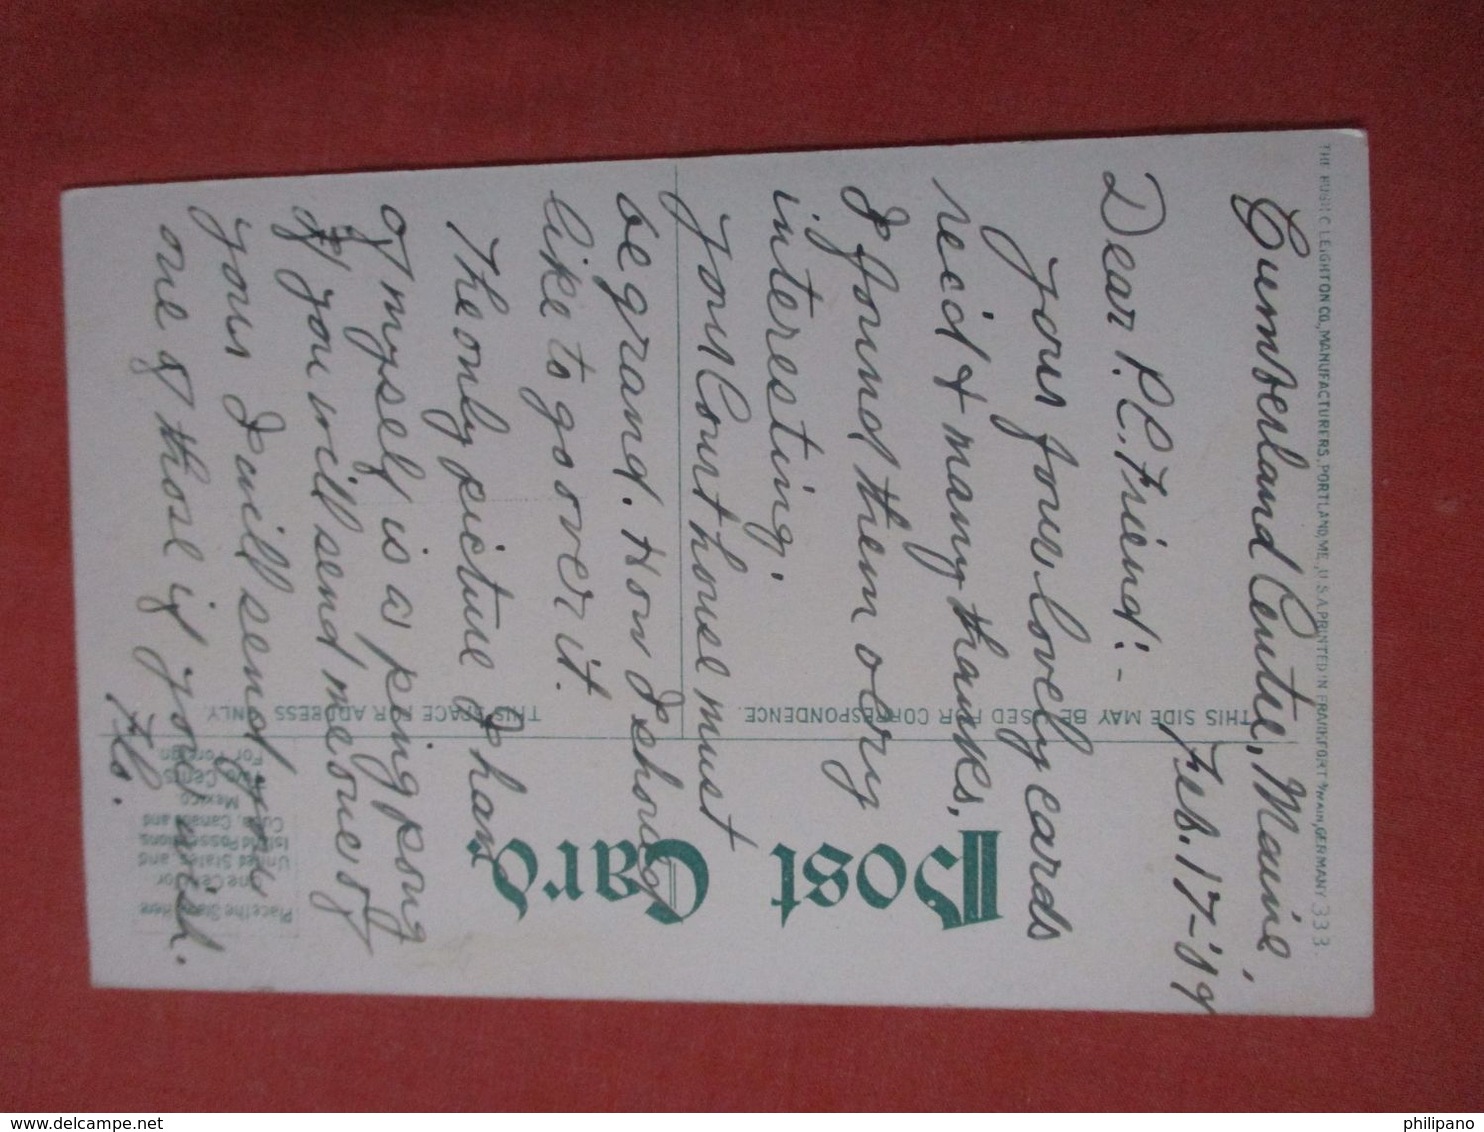 Cumberland Centre, Maine,
Feb. 17-'09
Dear P.C. Friend:-
Your four lovely cards
rec'd & many thanks,
I found them o so very
interesting.
Your Court house must
be grand. How I should
like to go over it.
The only picture I have
of myself is a ping pong
if you will send me one of
yours I will send you
one of those if you wish.
Flo.
THE HUGH C. LEIGHTON CO., MANUFACTURERS, PORTLAND, ME., U.S.A. PRINTED IN FRANKFORT o/MAIN, GERMANY
333.
Post Card.
THIS SIDE MAY BE USED FOR CORRESPONDENCE.
THIS SPACE FOR ADDRESS ONLY.
Place the Stamp here
One Cent for
United States and
Island Possessions,
Cuba, Canada and
Mexico
Two Cents
For Foreign
philipano